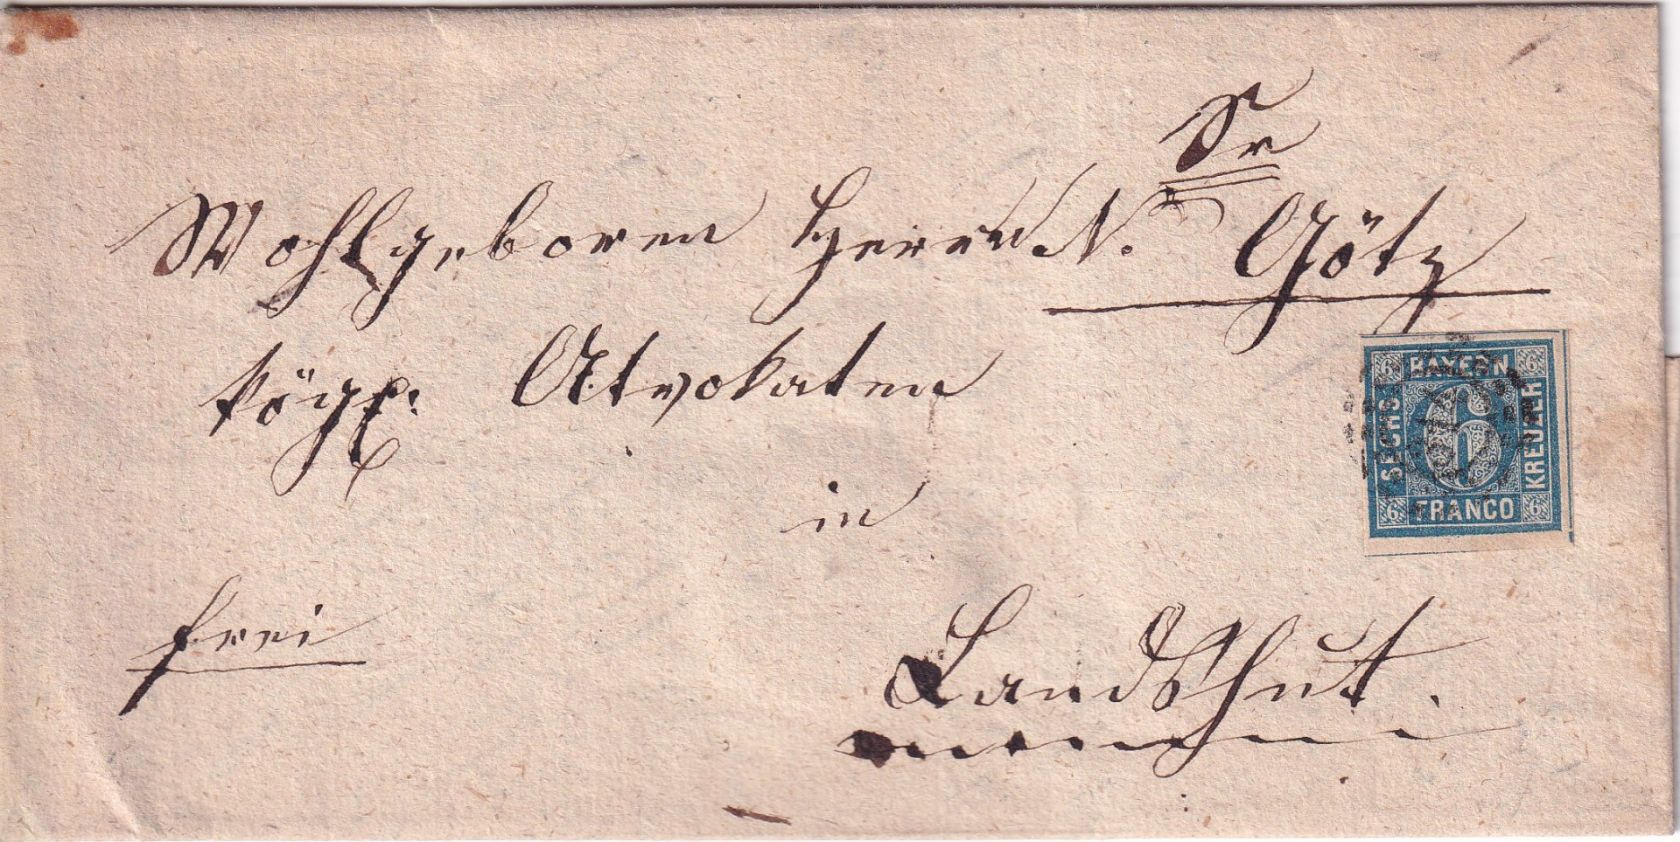 Sr
Wohlgeboren Herrn N. Götz
kögl. Atvokaten
in
frei
Landshut.
6 BAYERN 6
SECHS
6
KREUZER
6 FRANCO 6